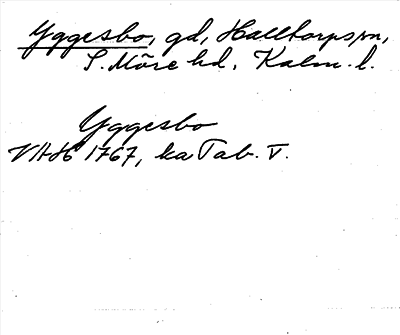 Yggesbo, gd, Halltorps sn,
S. Möre hd. Kalm. l.
Yggesbo
VAH 1767, ka Tab. V.